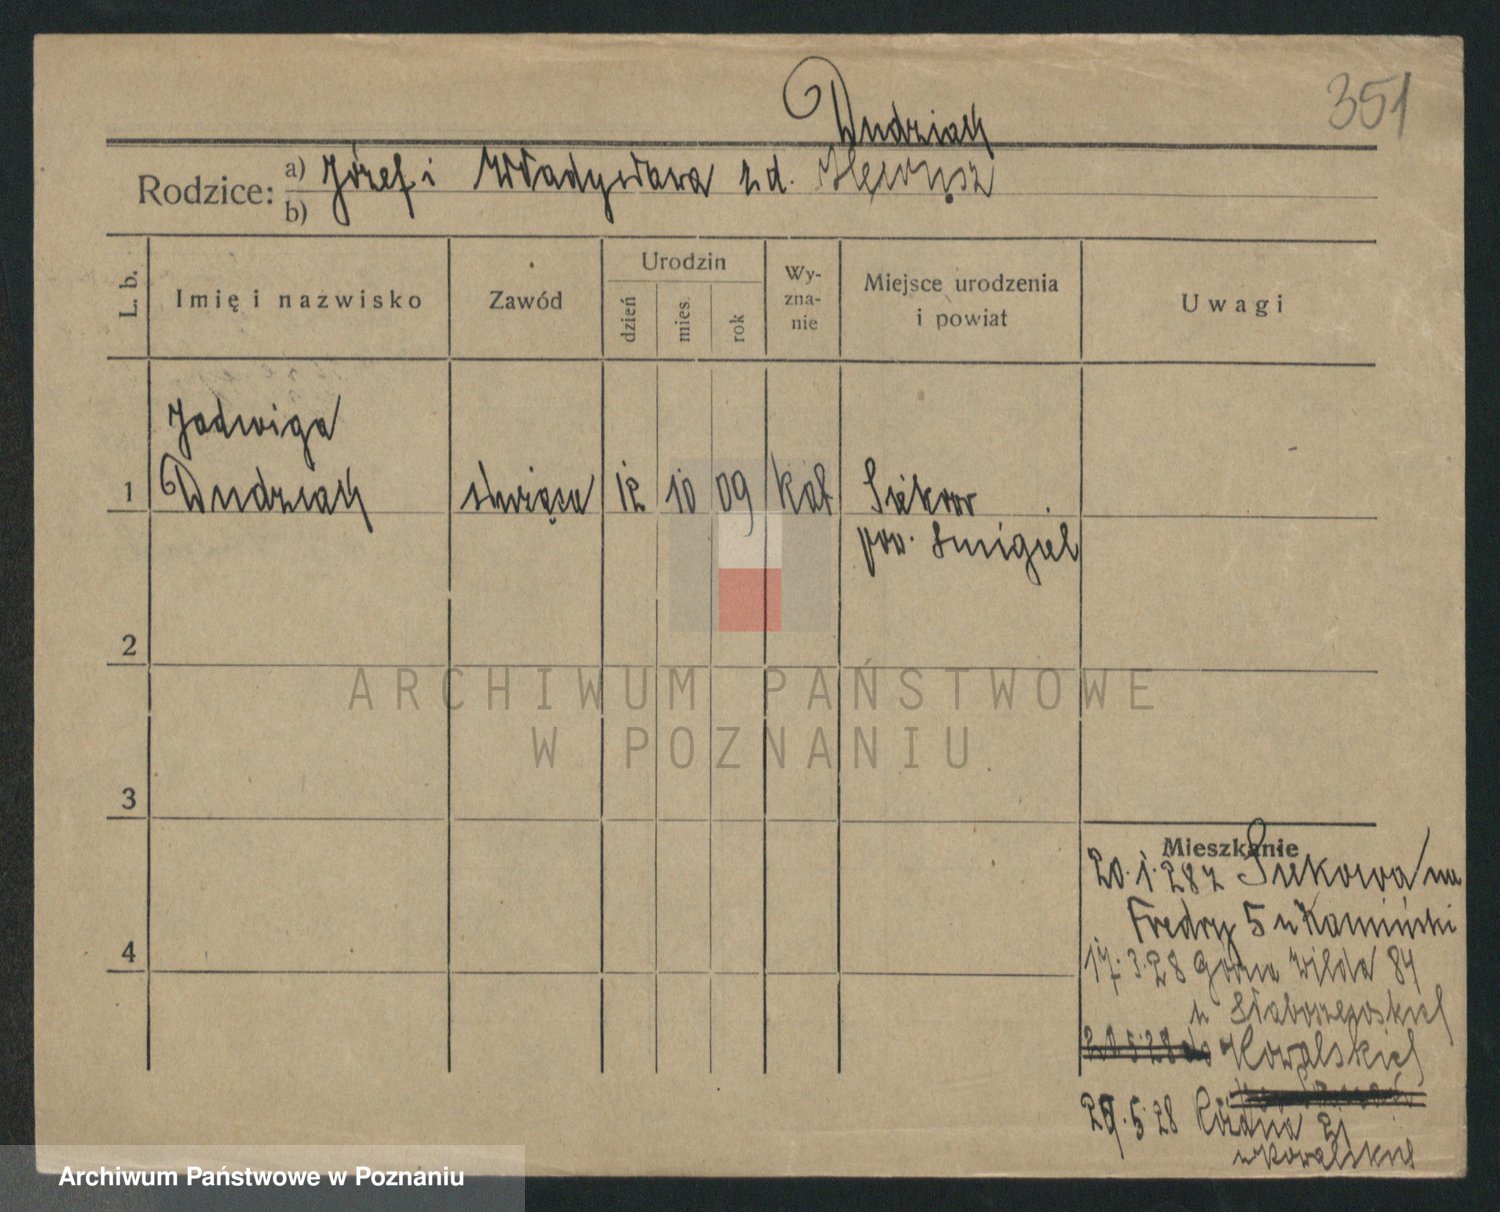 351
Dudziak
Rodzice: a) Józef i Władysława zd.
b)
L. b.
Imię i nazwisko
Zawód
Urodzin
dzień
mies.
rok
Wy-
zna-
nie
Miejsce urodzenia
i powiat
Uwagi
Jadwiga
1 Dudziak służąca 12 10 09 kat
pow. Śmigiel
2
3
4
ARCHIWUM PAŃSTWOWE
W POZNANIU
Mieszkanie
20.1.28 z na
Fredry 5 u Kamiński
17.3.28 Górna Wilda 84
u
Kowalskich
29.5.28 Różana 21
u Kowalskich
Archiwum Państwowe w Poznaniu